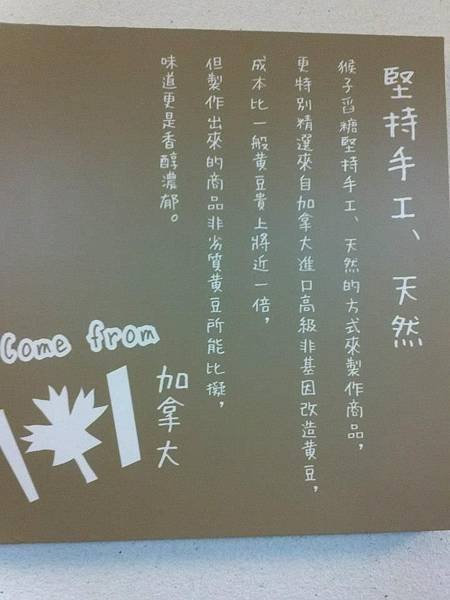 堅持手工、天然
猴子舀糖堅持手工、天然的方式來製作商品，
更特別精選來自加拿大進口高級非基因改造黃豆，
成本比一般黃豆貴上將近一倍，
但製作出來的商品非劣質黃豆所能比擬，
味道更是香醇濃郁。
Come from
加拿大